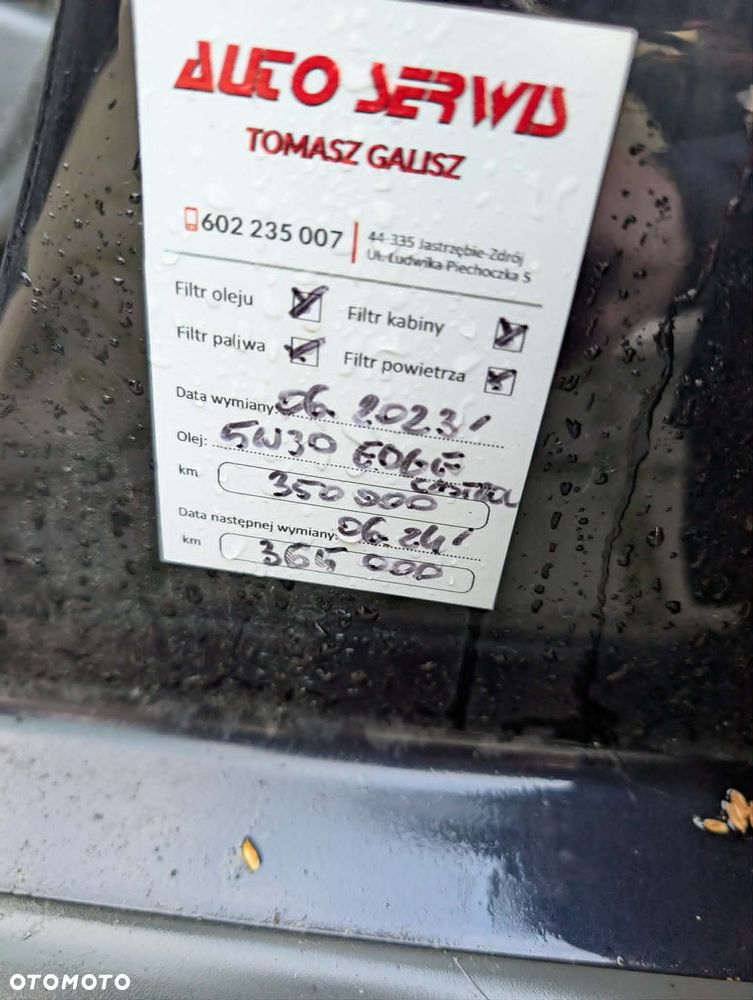 AUTO SERWIS
TOMASZ GALISZ
602 235 007 44-335 Jastrzębie-Zdrój
Ul. Ludwika Piechoczka 5
Filtr oleju Filtr kabiny
Filtr paliwa Filtr powietrza
Data wymiany: 06. 2023
Olej: 5W30 EDGE
CASTROL
km 350 000
Data następnej wymiany: 06. 24
km 365 000
OTOMOTO